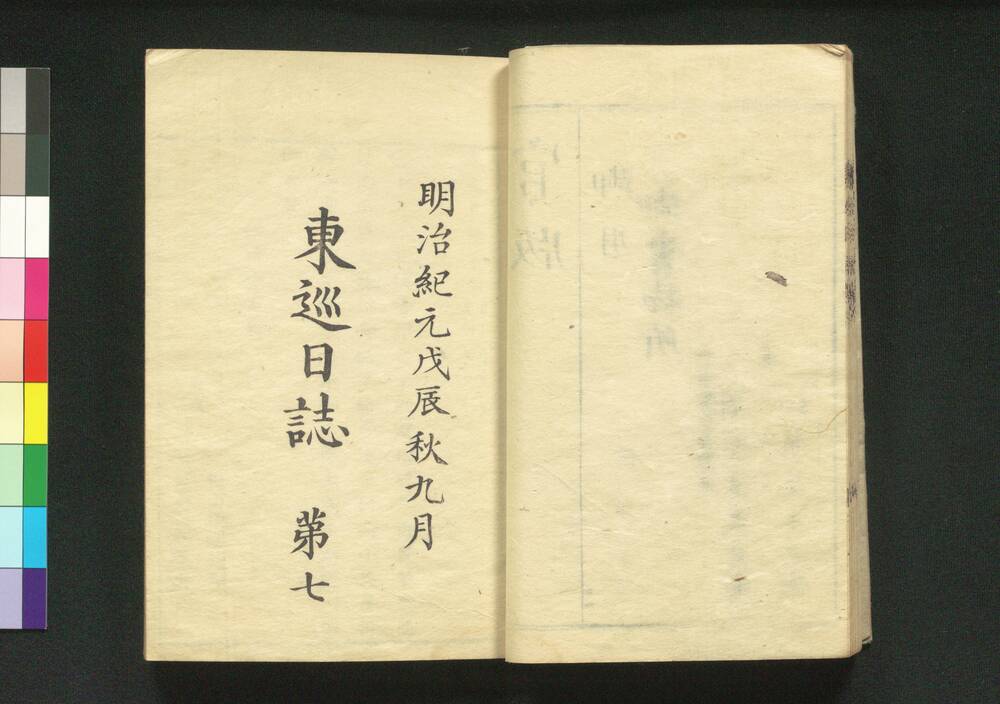 明治紀元戊辰秋九月
東巡日誌 第七